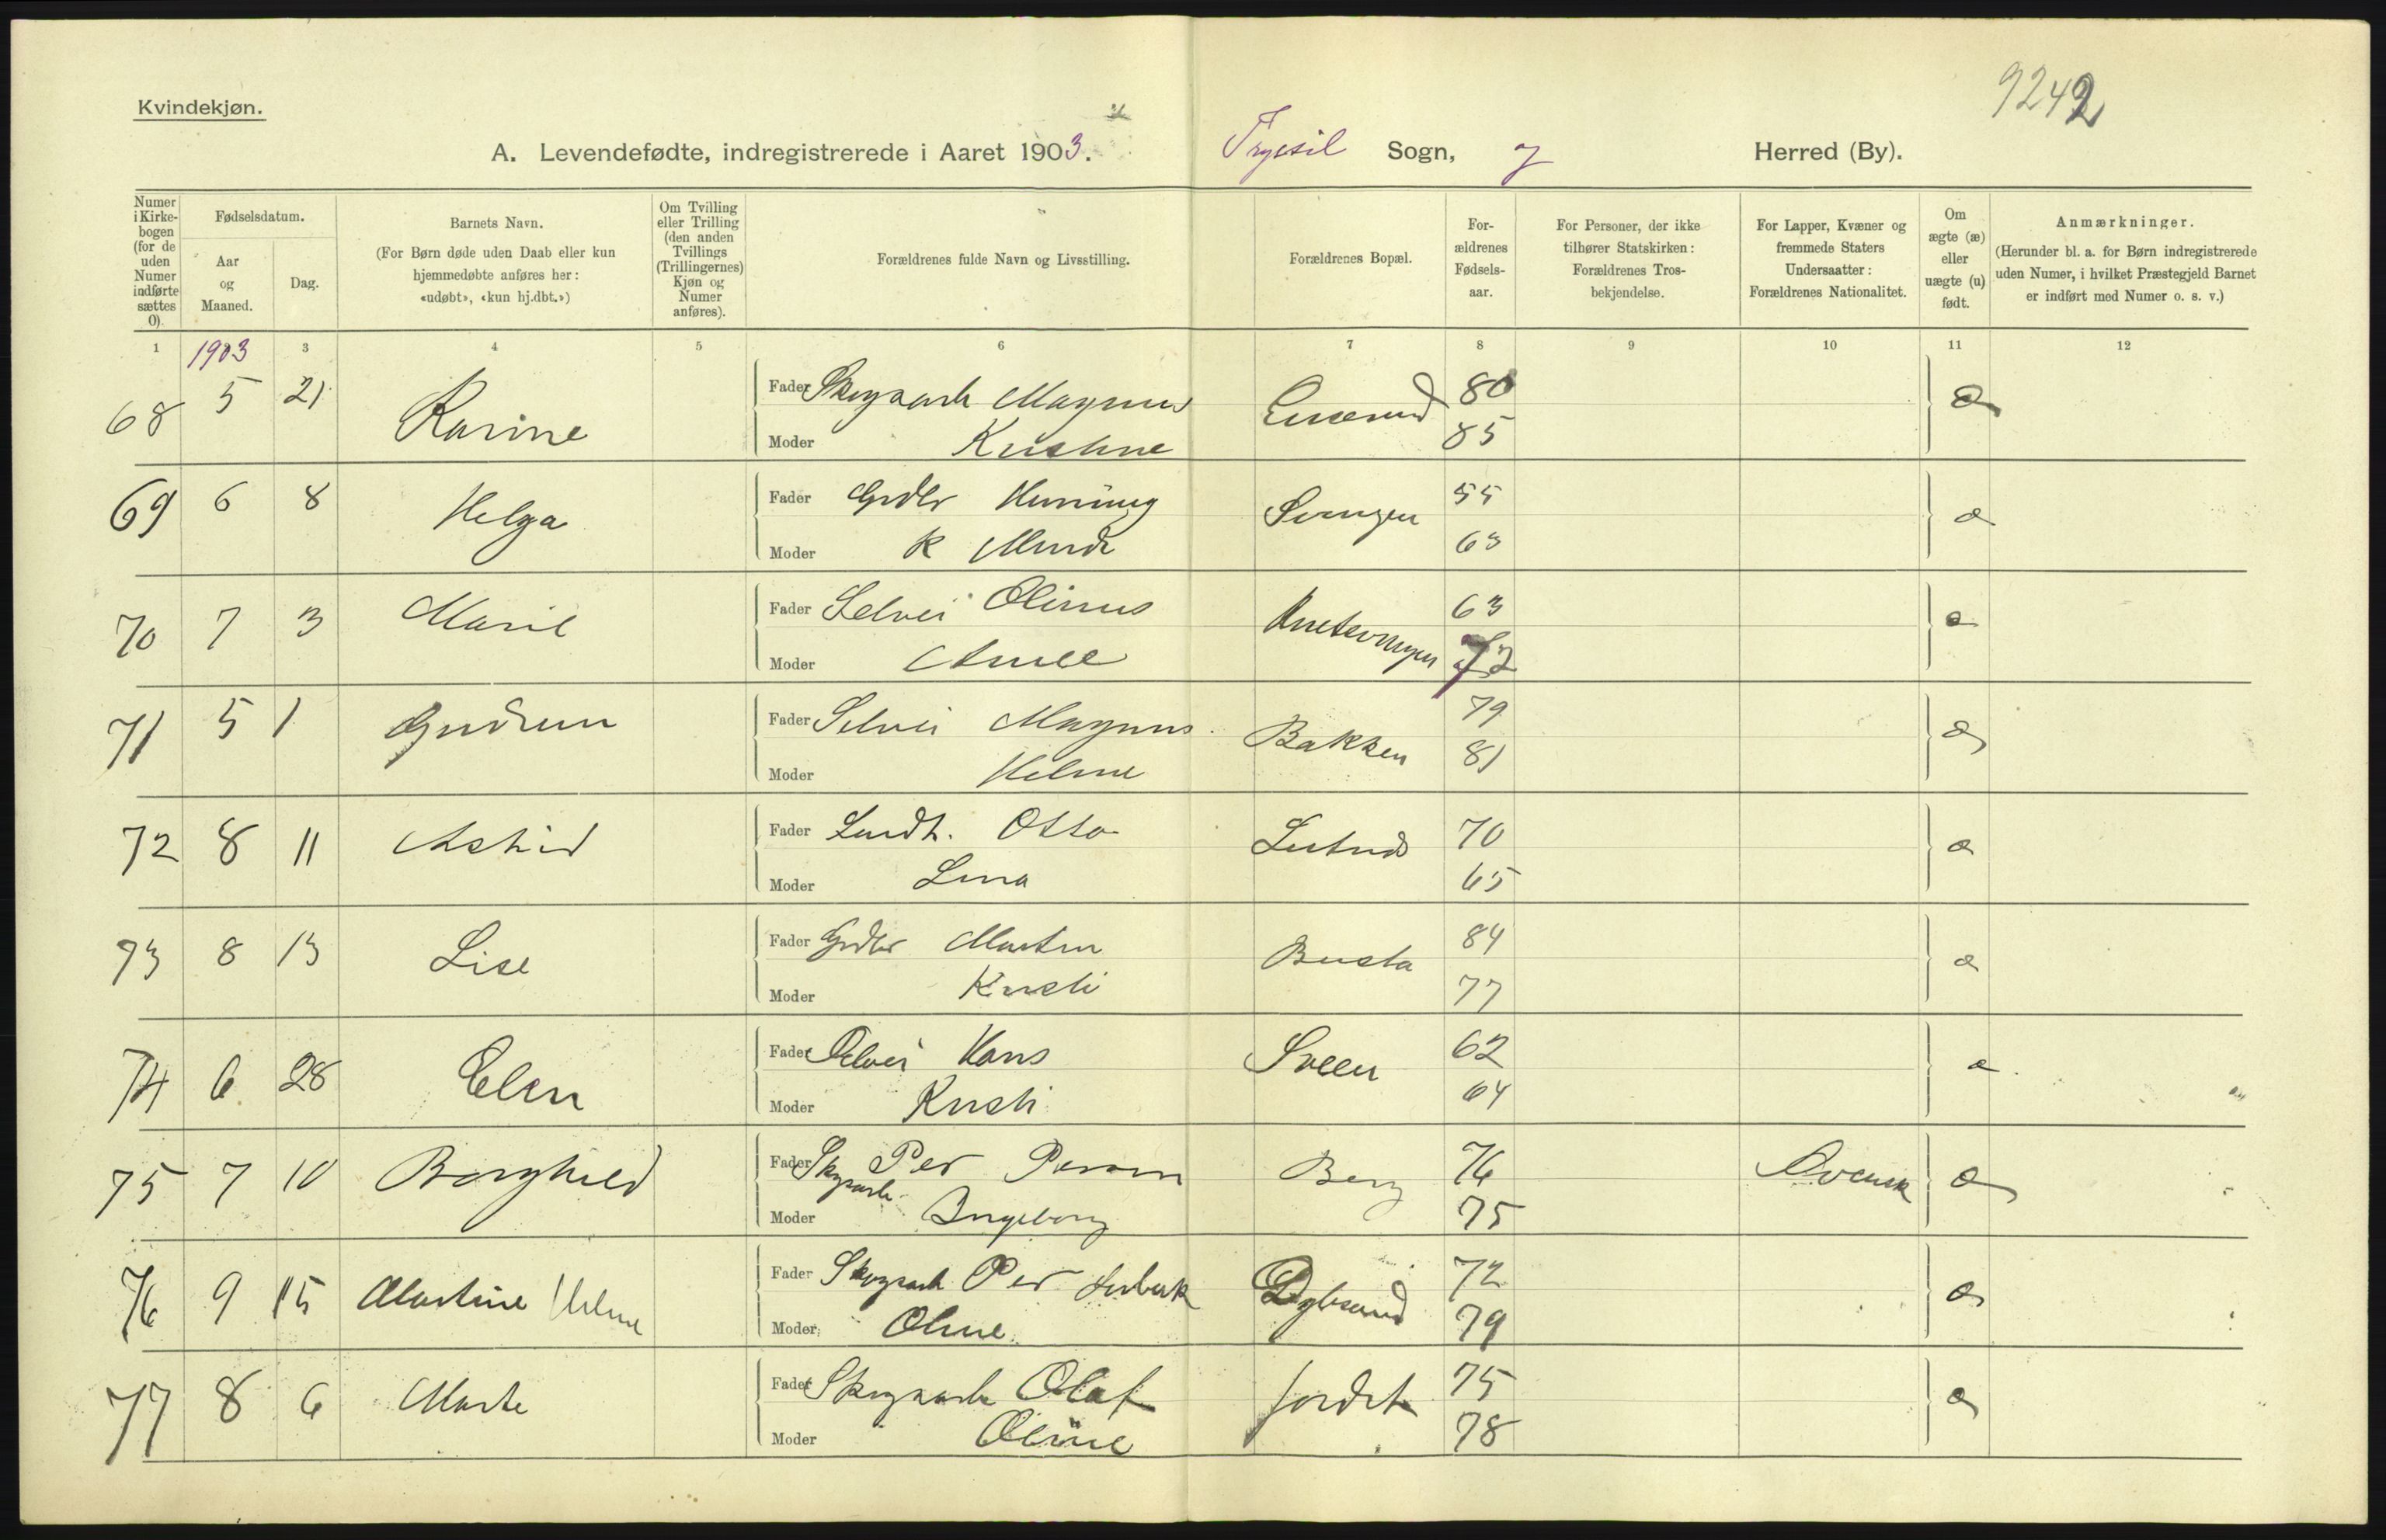 9242
Kvindekjøn.
A. Levendefødte, indregistrerede i Aaret 1903. Trysil Sogn, Herred (By).
Numer i Kirkebogen (for de uden Numer indførte sættes 0).
Fødselsdatum.
Aar og Maaned.
Dag.
Barnets Navn.
(For Børn døde uden Daab eller kun hjemmedøbte anføres her: «udøbt», «kun hj.dbt.»)
Om Tvilling eller Trilling (den anden Tvillings (Trillingernes) Kjøn og Numer anføres).
Forældrenes fulde Navn og Livsstilling.
Forældrenes Bopæl.
Forældrenes Fødselsaar.
For Personer, der ikke tilhører Statskirken: Forældrenes Trosbekjendelse.
For Lapper, Kvæner og fremmede Staters Undersaatter: Forældrenes Nationalitet.
Om ægte (æ) eller uægte (u) født.
Anmærkninger.
(Herunder bl. a. for Børn indregistrerede uden Numer, i hvilket Præstegjeld Barnet er indført med Numer o. s. v.)
1 3 4 5 6 7 8 9 10 11 12
1903
68 5 21 Karine Fader Skogsarb Magnus 80 æ
Moder Kristine 85
69 6 8 Helga Fader Grdbr Henning 55 æ
Moder K Minde 63
70 7 3 Marit Fader Selvei Olinus 63 æ
Moder 72
71 5 1 Gudrun Fader Selvei Magnus Bakken 79 æ
Moder Helme 81
72 8 11 Astrid Fader Landh. Otto Lutnes 70 æ
Moder Lina 65
73 8 13 Lise Fader Grdbr Martin Busta 84 æ
Moder Kirsti 77
74 6 28 Elen Fader Selvei Hans Sveen 62 æ
Moder Kirsti 64
75 7 10 Borghild Fader Skogsarb. Per Person Berg 76 Svensk æ
Moder Ingeborg 75
76 9 15 Martine Helme Fader Skogsarb Per 72 æ
Moder Oline 79
77 8 6 Marte Fader Skogsarb Olaf Jordet 75 æ
Moder Oline 78